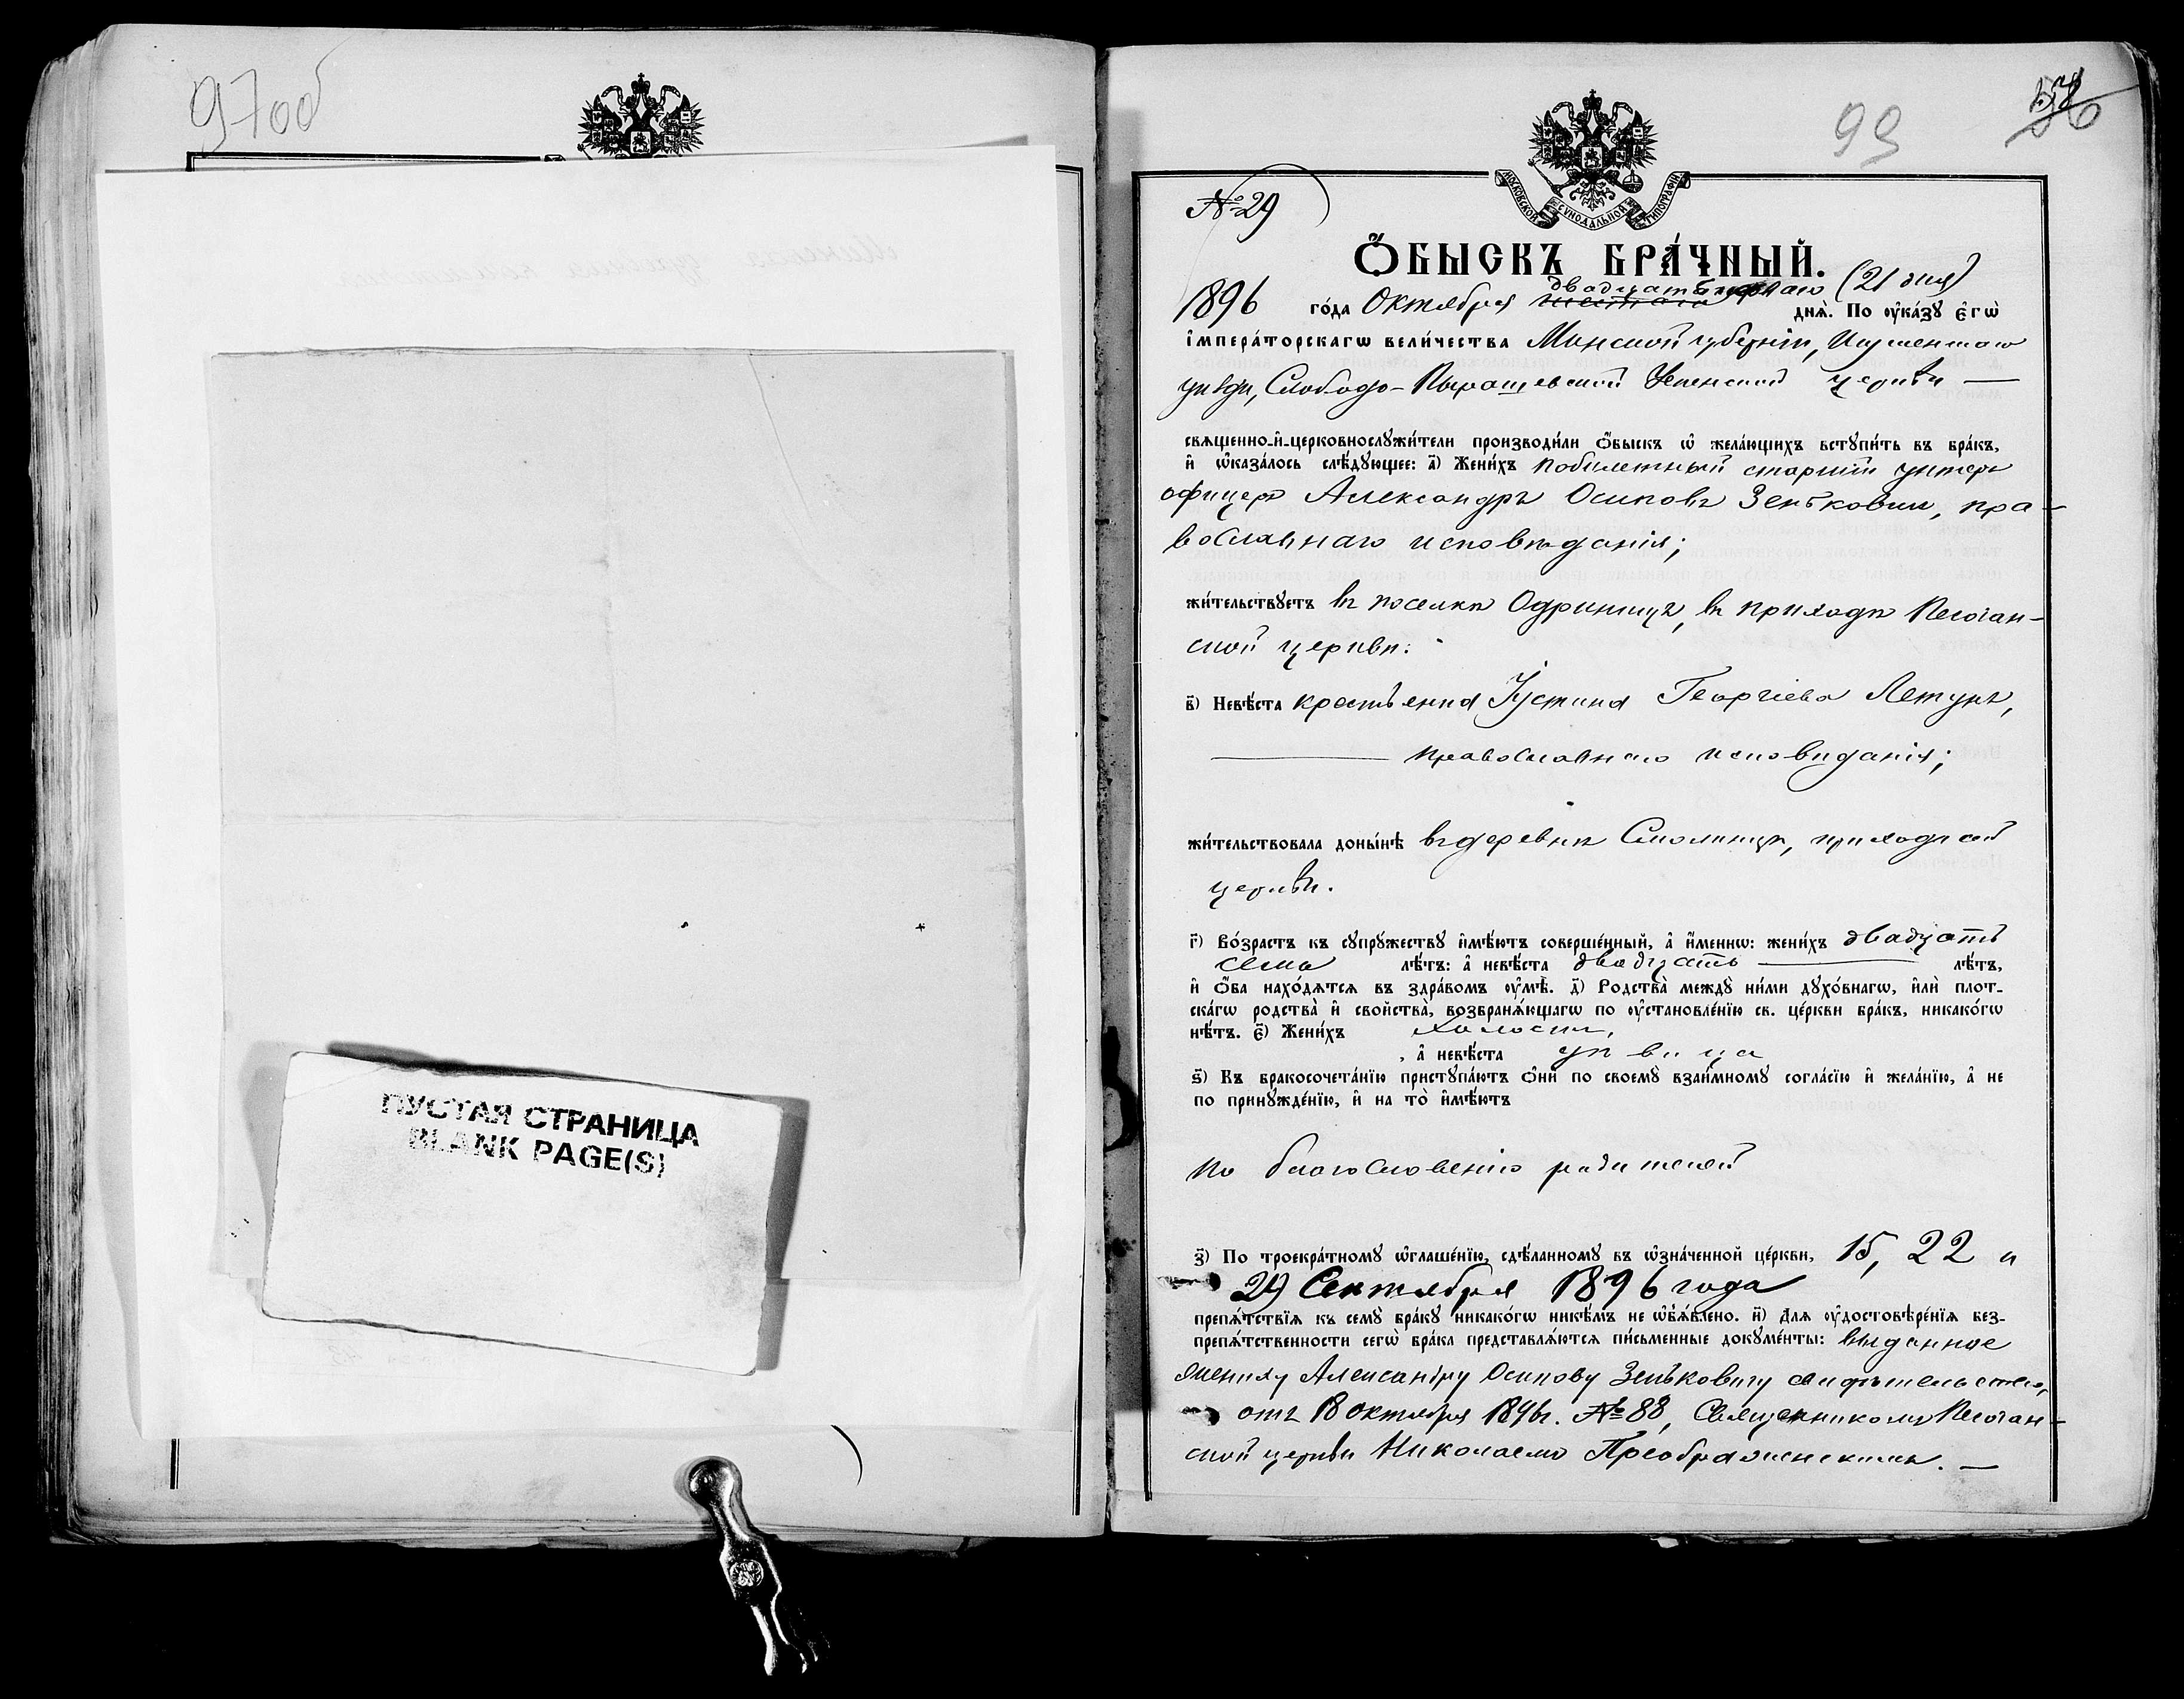 97об
ПУСТАЯ СТРАНИЦА
BLANK PAGE(S)
99
МОСКОВСКОЙ СѴНОДАЛЬНОЙ ТИПОГРАФІИ
№ 29
Ѻ҆БЫСКЪ БРА́ЧНЫЙ.
двадцать перваго (21 дня)
1896 го́да Октября дня̀. По ᲂу҆ка́зꙋ є҆гѡ̀
і҆мпера́торскагѡ вели́чества Минской губерніи, Игуменскаго
уѣзда, Слободо-Пырашевской Успенской церкви —
свѧщенно-и҆-церковнослꙋжи́тели производи́ли ѻ҆́быскъ ѡ҆ жела́ющихъ встꙋпи́ть въ бра́къ,
и҆ ѡ҆каза́лось слѣ́дꙋющее: а҃) Жени́хъ побилетный старшій унтеръ
офицеръ Александръ Осиповъ Зеньковичъ, пра-
вославнаго исповѣданія;
жи́тельствꙋетъ въ поселкѣ Одриницѣ, въ приходѣ Песочан-
ской церкви.
в҃) Невѣ́ста крестьянка Іустина Георгіева Летунъ,
православнаго исповѣданія;
жи́тельствовала доны́нѣ въ деревнѣ Смолинцѣ, прихода сей
церкви.
г҃) Во́зрастъ къ сꙋпрꙋжествꙋ и҆мѣ́ютъ соверше́нный, а҆ и҆́меннѡ: жени́хъ двадцать
семь лѣ́тъ: а҆ невѣ́ста двадцать лѣ́тъ,
и҆ ѻ҆́ба нахо́дѧтсѧ въ здра́вомъ ᲂу҆мѣ̀. д҃) Родства̀ междꙋ̀ ни́ми дꙋхо́внагѡ, и҆лѝ плот-
ска́гѡ родства̀ и҆ свойства̀, возбранѧ́ющагѡ по ᲂу҆становле́нїю св. це́ркви бра́къ, никако́гѡ
нѣ́тъ. є҃) Жени́хъ холостъ,
, а҆ невѣ́ста дѣвица
ѕ҃) Къ бракосочета́нїю пристꙋпа́ютъ ѻ҆нѝ по своемꙋ̀ взаи́мномꙋ согла́сїю и҆ жела́нїю, а҆ не
по принꙋжде́нїю, и҆ на то̀ и҆мѣ́ютъ
по благословенію родителей
з҃) По троекра́тномꙋ ѡ҆глаше́нїю, сдѣ́ланномꙋ въ ѡ҆зна́ченной це́ркви, 15, 22 и
29 Сентября 1896 года
препѧ́тствїѧ къ семꙋ̀ бра́кꙋ никако́гѡ никѣ́мъ не ѡ҆б̾ѧ́влено. и҃) Длѧ ᲂу҆достовѣре́нїѧ без-
препѧ́тственности сегѡ̀ бра́ка представлѧ́ютсѧ пи́сьменные докꙋме́нты: выданное
жениху Александру Осипову Зеньковичу свидѣтельство,
отъ 18 октября 1896г. № 88, Священникомъ Песочан-
ской церкви Николаемъ Преображенскимъ. —